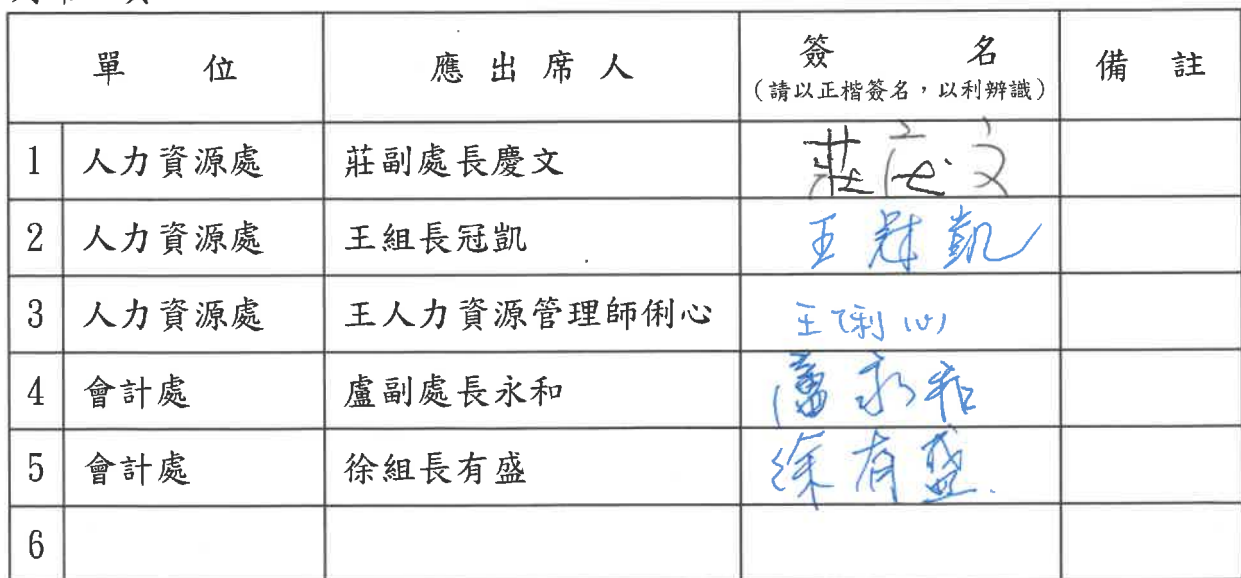 單 位 應出席人 簽 名 備 註
(請以正楷簽名，以利辨識)
1 人力資源處 莊副處長慶文 莊慶文
2 人力資源處 王組長冠凱 王冠凱
3 人力資源處 王人力資源管理師俐心 王俐心
4 會計處 盧副處長永和 盧永和
5 會計處 徐組長有盛 徐有盛
6